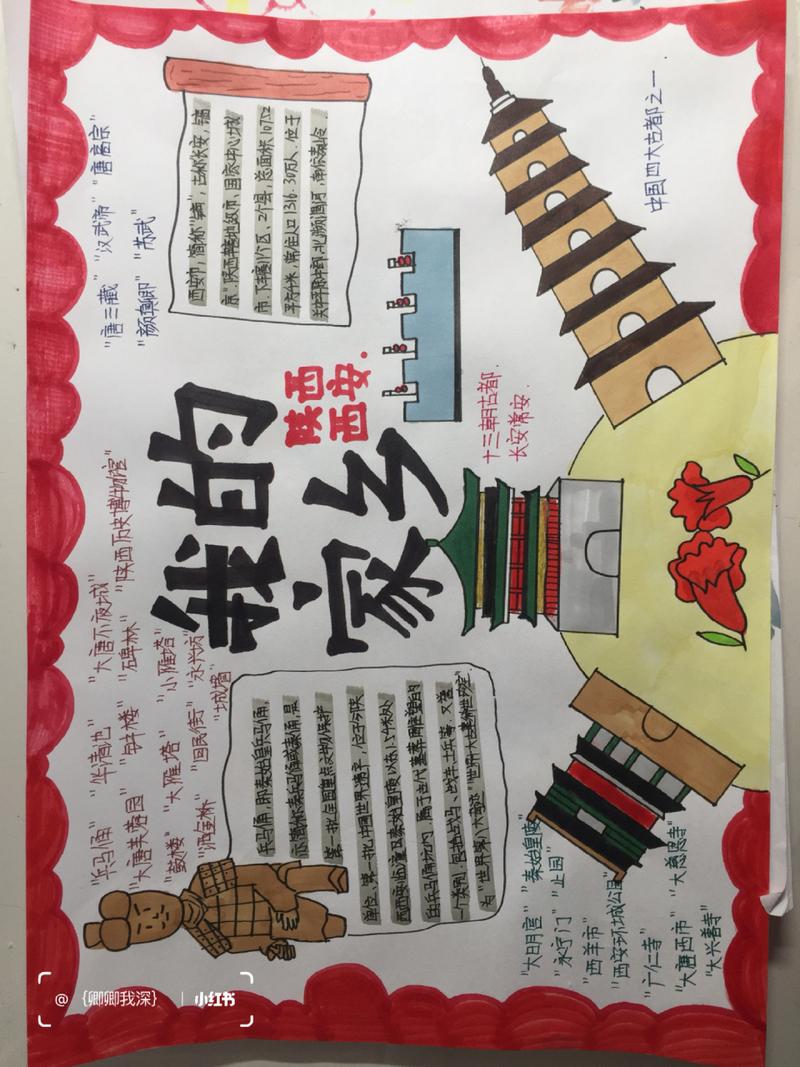 我的
家乡
陕西
西安.
"兵马俑" "华清池" "大唐不夜城"
"大唐芙蓉园" "钟楼" "碑林" "陕西历史博物馆"
"鼓楼" "大雁塔" "小雁塔"
"洒金桥" "回民街" "永兴坊"
"城墙"
"唐三藏" "汉武帝" "唐高宗"
"颜真卿" "苏武"
西安市,简称"镐",古称长安、镐
京,陕西辖地级市,国家中心城
市.下辖11个区、2个县,总面积10752
平方千米.常住人口1316.30万人.位于
关中平原中部,北濒渭河,南依秦岭.
兵马俑,即秦始皇兵马俑,
亦简称秦兵马俑或秦俑,是
第一批全国重点文物保护
单位、第一批中国世界遗产,位于今陕
西西安临潼区秦始皇陵以东1.5千米处
的兵马俑坑内.属于古代墓葬雕塑的
一个类别.包括战马、战车、士兵等.又誉
为"世界第八大奇迹"
十三朝古都.
长安常安.
中国四大古都之一
"大明宫" "秦始皇陵"
"永宁门" "止园"
"西羊市"
"西安环城公园"
"广仁寺"
"大唐西市" "大慈恩寺"
"大兴善寺"
@{卿卿我深} | 小红书